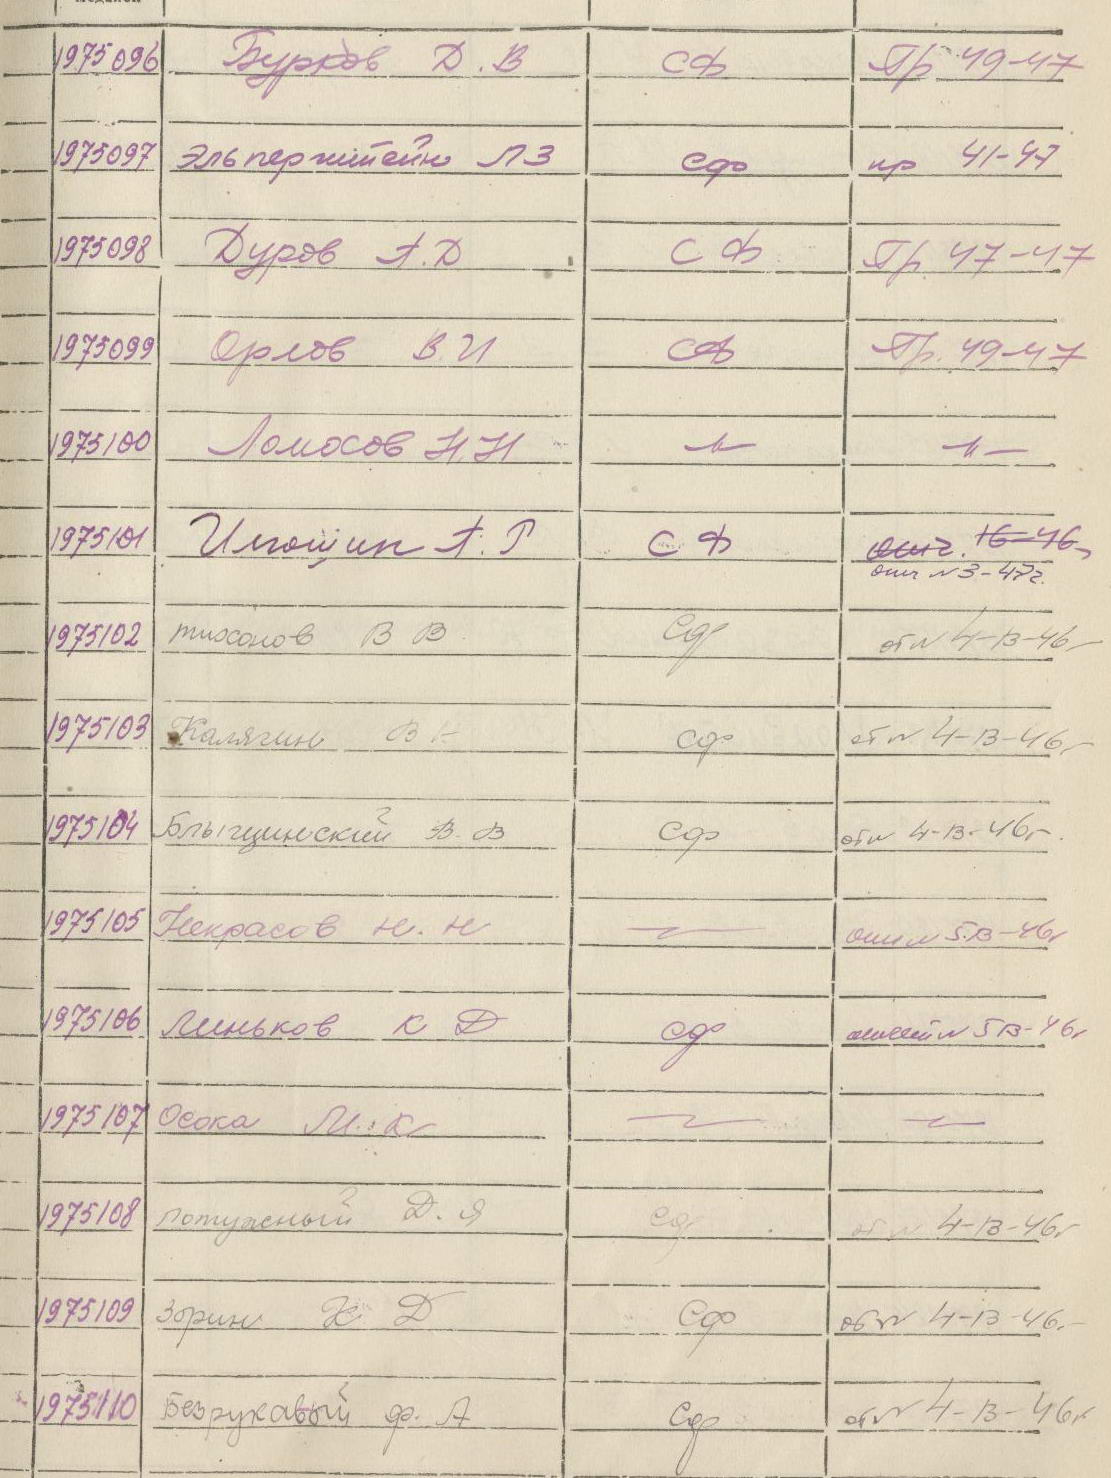 1975096 Бурков Д.В СФ Пр. 49-47
1975097 Эльперштейн Л З сф пр 41-47
1975098 Дуров А.Д СФ Пр. 47-47
1975099 Орлов В.И СФ Пр. 49-47
1975100 Ломосов Н.Н -"- -"-
1975101 Игошин А.Г СФ 16-46
№3-47г.
1975102 тихонов В В Сф от№ 4-В-46г
1975103 Калягин В Н сф от№ 4-В-46г
1975104 В.В Сф от№ 4-В-46г.
1975105 Некрасов Н.Н № 5.В-46г
1975106 Линьков К Д сф № 5В-46г
1975107 Осока М.К
1975108 потужный Д.Я сф от № 4-В-46г
1975109 Зорин К Д Сф от№ 4-В-46г
1975110 Безрукавый Ф.А Сф от№ 4-В-46г